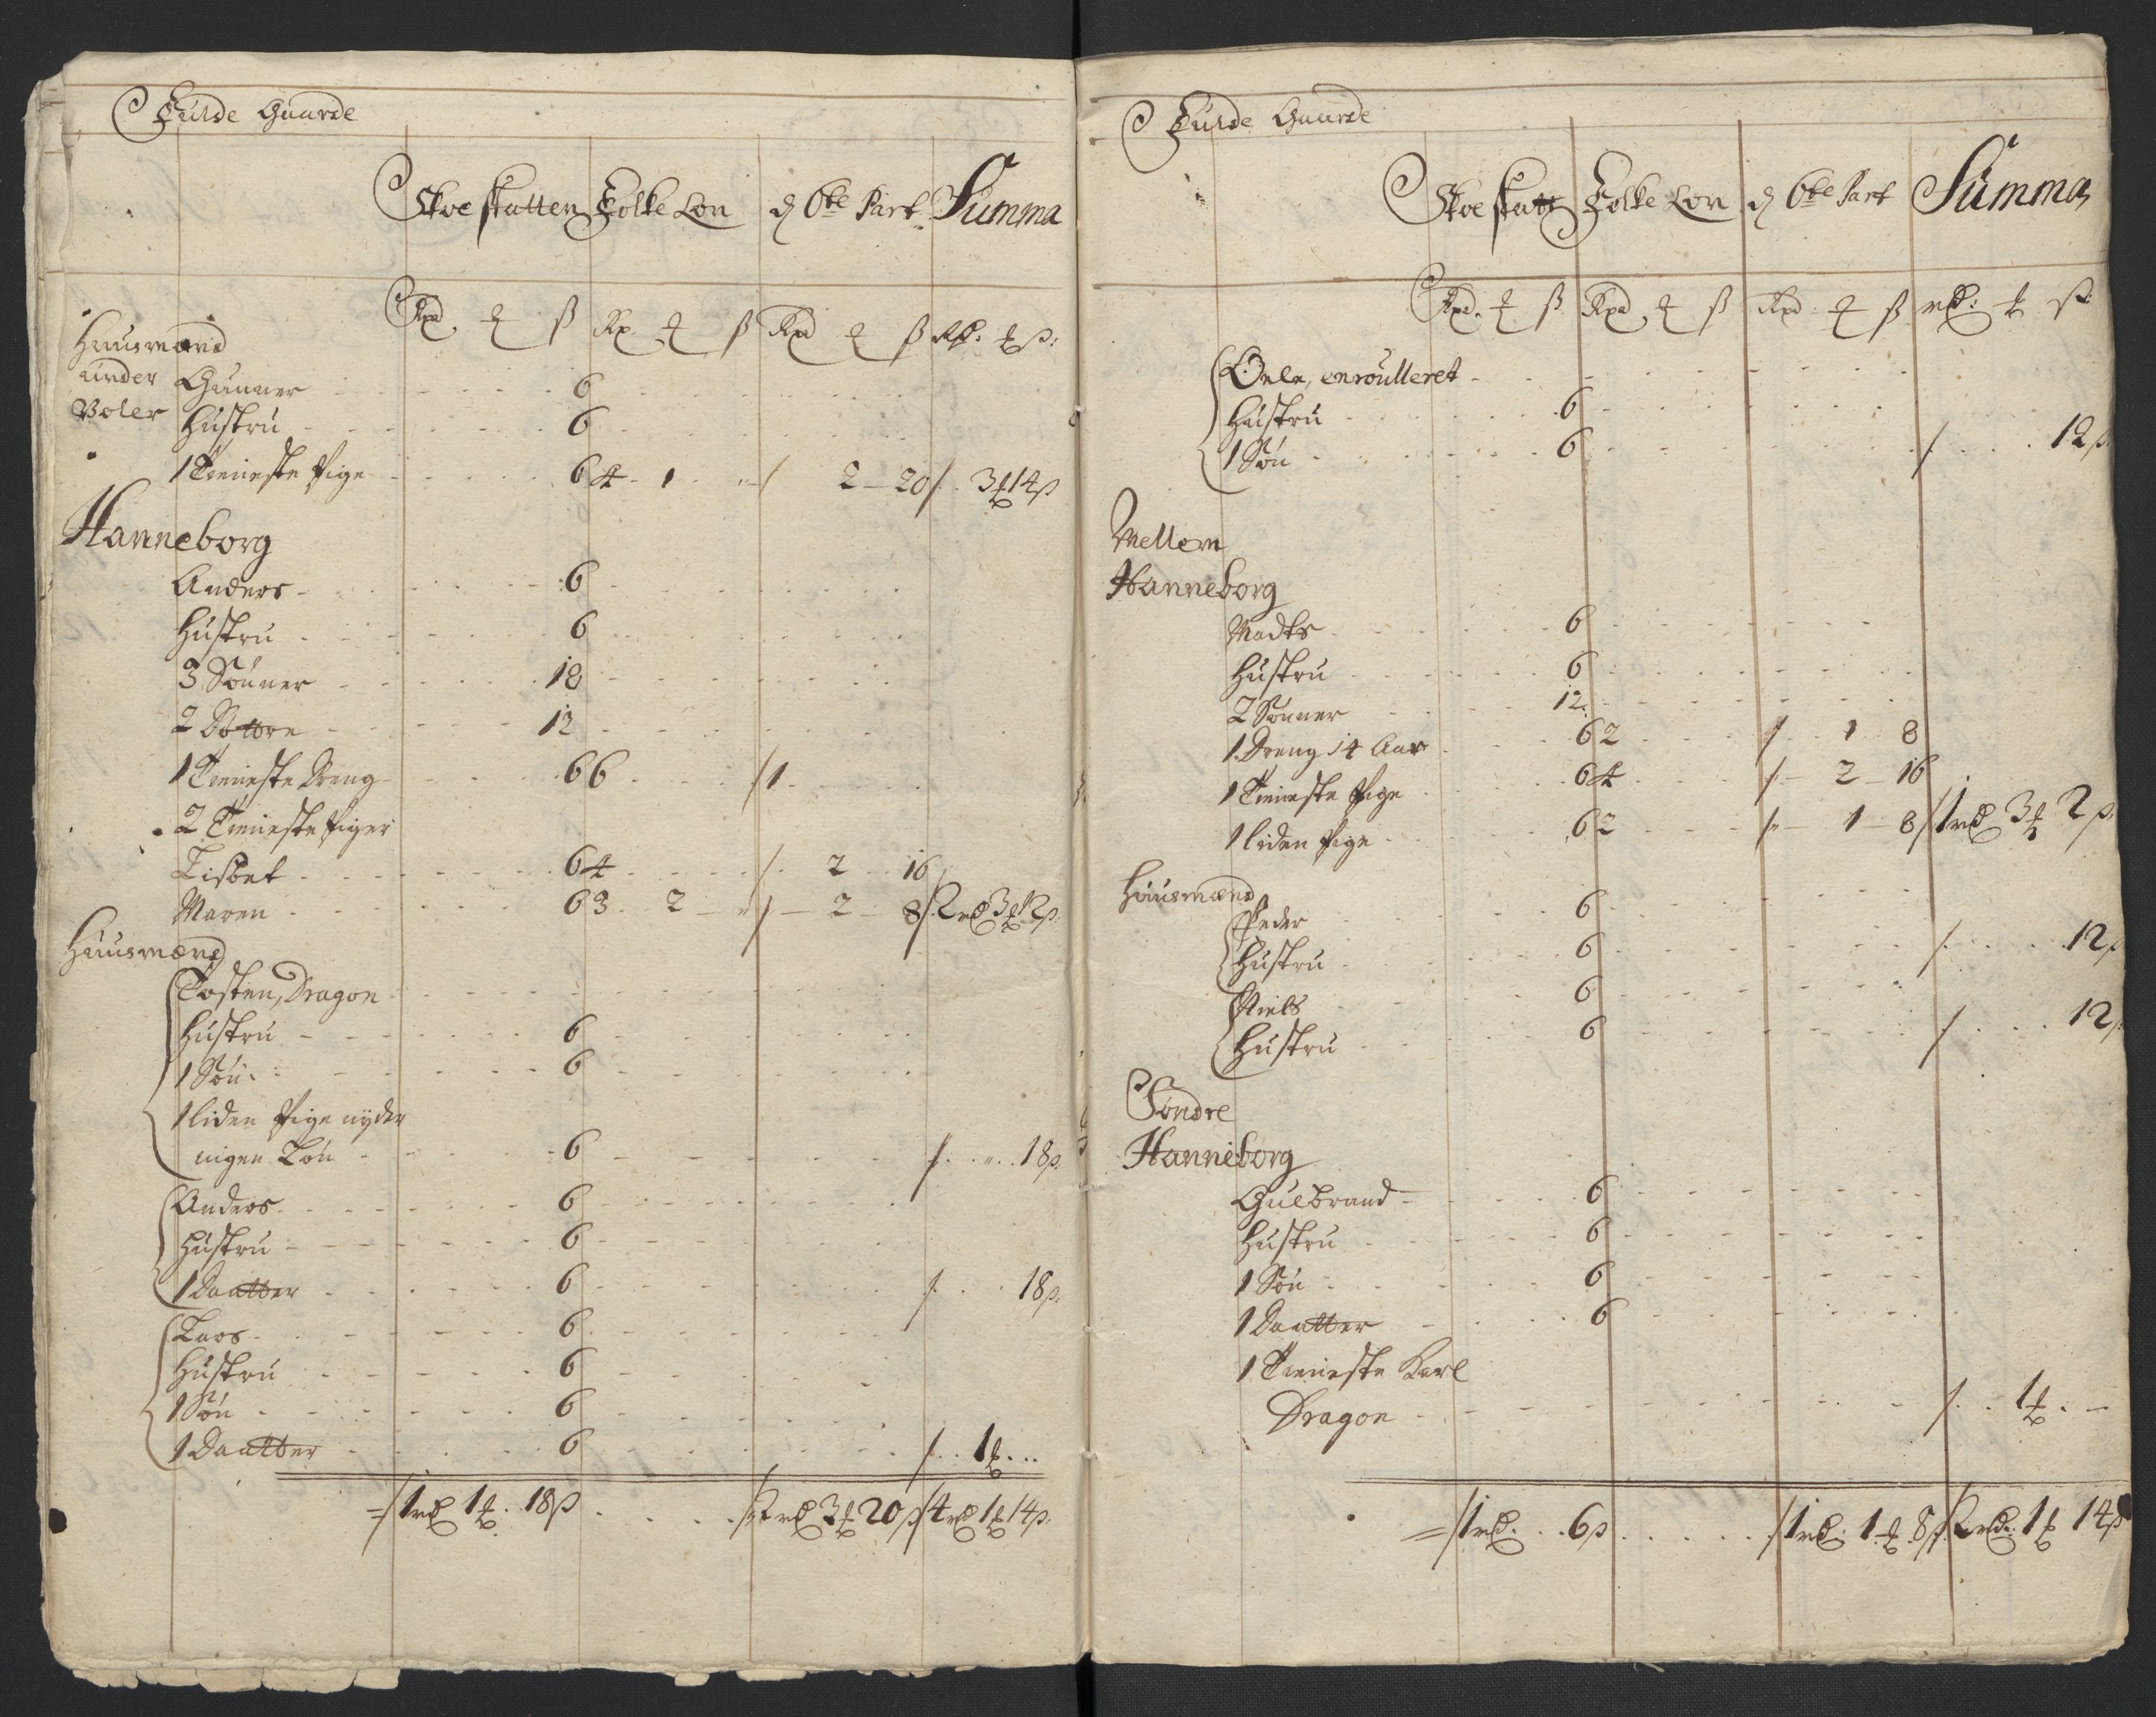 Fulde Gaarde
Skoeskatten Folke Lön d 6te Part Summa
Rpd. ꝗ ß Rp ꝗ ß Rpd ꝗ ß Rd: ꝗ ß:
Huusmænd
under Gunner 6
Voler Hustru 6
1 Tieniste Pige 6 4 - 1 - / 2 - 20 /. 3ꝗ 14ß
Hanneborg
Anders 6
Hustru 6
3 Sönner 18
2 Döttre 12
1 Tieniste Dreng 6 6 / 1.
2 Tieniste Piger
Lisbet 6 4 /. 2 16
Maren 6 3 2 / 2 8 /. 2 rd 3ꝗ 12ß.
Huusmænd
Tosten, Dragon
Hustru 6
1 Sön 6
1 liden Pige nyder
ingen Lön 6 /. 18ß.
Anders 6
Hustru 6
1 Daatter 6 /. 18ß.
Lars 6
Hustru 6
1 Sön 6
1 Daatter 6 /. 1ꝗ
= / 1 rd 1ꝗ. 18ß /. 2 rd 3ꝗ 20ß / 4 rd 1ꝗ 14ß.
Fulde Gaarde
Skoeskatt Folke Lön d 6te Part Summa
Rpd. ꝗ ß Rpd ꝗ ß Rpd ꝗ ß rd: ꝗ ß:
Oele, enroulleret
Hustru 6
1 Sön 6 /. 12ß
Mellem
Hanneborg
Madts 6
Hustru 6
2 Sönner 12.
1 Dreng 14 Aar 6 2 /. 1 8
1 Tieniste Pige 6 4 /. 2 - 16
1 liden Pige 6 2 /. 1 - 8 / 1 rd 3ꝗ 2ß.
Huusmænd
Peder 6
Hustru 6 /. 12ß
Niels 6
Hustru 6 /. 12ß
Söndre
Hanneborg
Gulbrand 6
Hustru 6
1 Sön 6
1 Daatter 6
1 Tieniste Karl
Dragon /. 1ꝗ. -
= / 1 rd. 6ß / 1 rd. 1ꝗ 8ß /. 2 rd. 1ꝗ 14ß